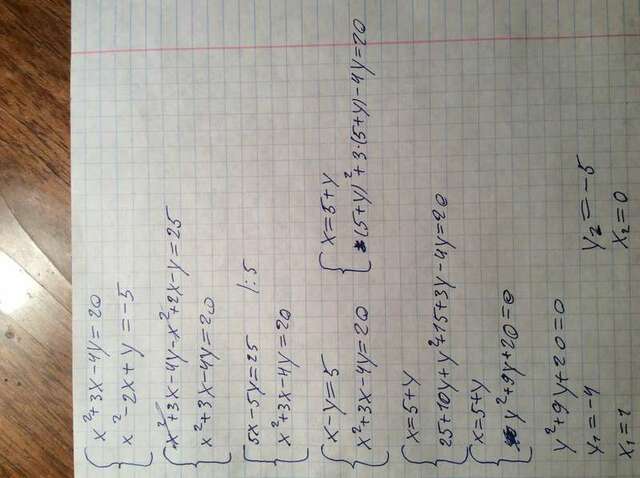 x²+3x-4y=20
x²-2x+y=-5
x²+3x-4y-x²+2x-y=25
x²+3x-4y=20
5x-5y=25 |:5
x²+3x-4y=20
x-y=5
x²+3x-4y=20
x=5+y
(5+y)²+3·(5+y)-4y=20
x=5+y
25+10y+y²+15+3y-4y=20
x=5+y
y²+9y+20=0
y²+9y+20=0
y₁=-4 y₂=-5
x₁=1 x₂=0